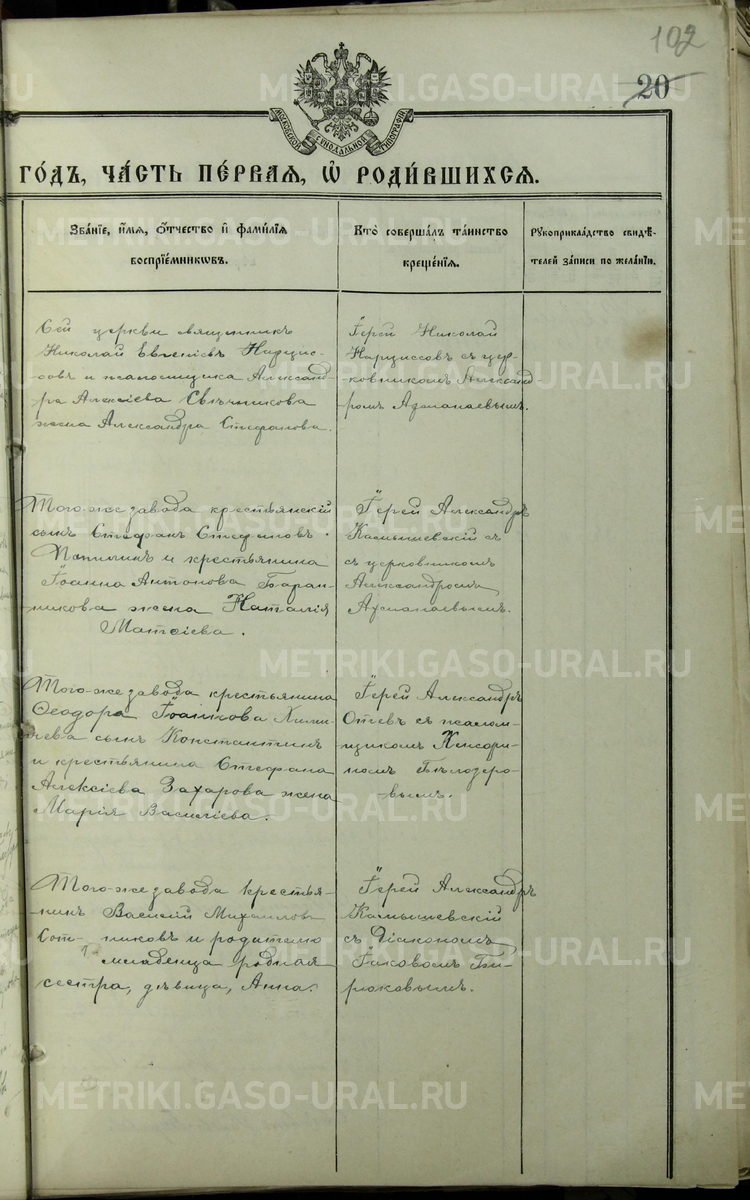 102
20
МОСКОВСКОЙ СѴНОДАЛЬНОЙ ТИПОГРАФІИ
ГО́ДЪ, ЧА́СТЬ ПЕ́РВАЯ, Ѡ҆ РОДИ́ВШИХСЯ.
Зва́нїе, и҆́мя, ѻ҆́тчество и҆ фами́лїя
воспрїе́мникѡвъ.
Кто̀ соверша́лъ та́инство
креще́нїя.
Рꙋкоприкла́дство свидѣ́-
телей за́писи по жела́нїи.
Сей церкви священникъ
Николай Евгеніевъ Нарцис-
совъ и псаломщика Александ-
ра Алексіева Свѣчникова
жена Александра Стефанова.
Іерей Николай
Нарциссовъ съ цер-
ковникомъ Александ-
ромъ
Того-же завода крестьянскій
сынъ Стефанъ Стефановъ
и крестьянина
Іоанна Антонова Баран-
никова жена Наталія
Матѳіева.
Іерей Александръ
Камышевскій съ
съ церковникомъ
Александромъ
Того-же завода крестьянина
Ѳеодора
сынъ Константинъ
и крестьянина Стефана
Алексіева Захарова жена
Марія Василіева.
Іерей Александръ
Отевъ съ псалом-
щикомъ
Бѣлозеро-
вымъ.
Того-же завода крестья-
нинъ Василій Михаиловъ
Сот- никовъ и родителю
младенца родная
сестра, дѣвица, Анна.
Іерей Александръ
Камышевскій
съ Діакономъ
Іаковомъ Би-
рюковымъ.
METRIKI.GASO-URAL.RU